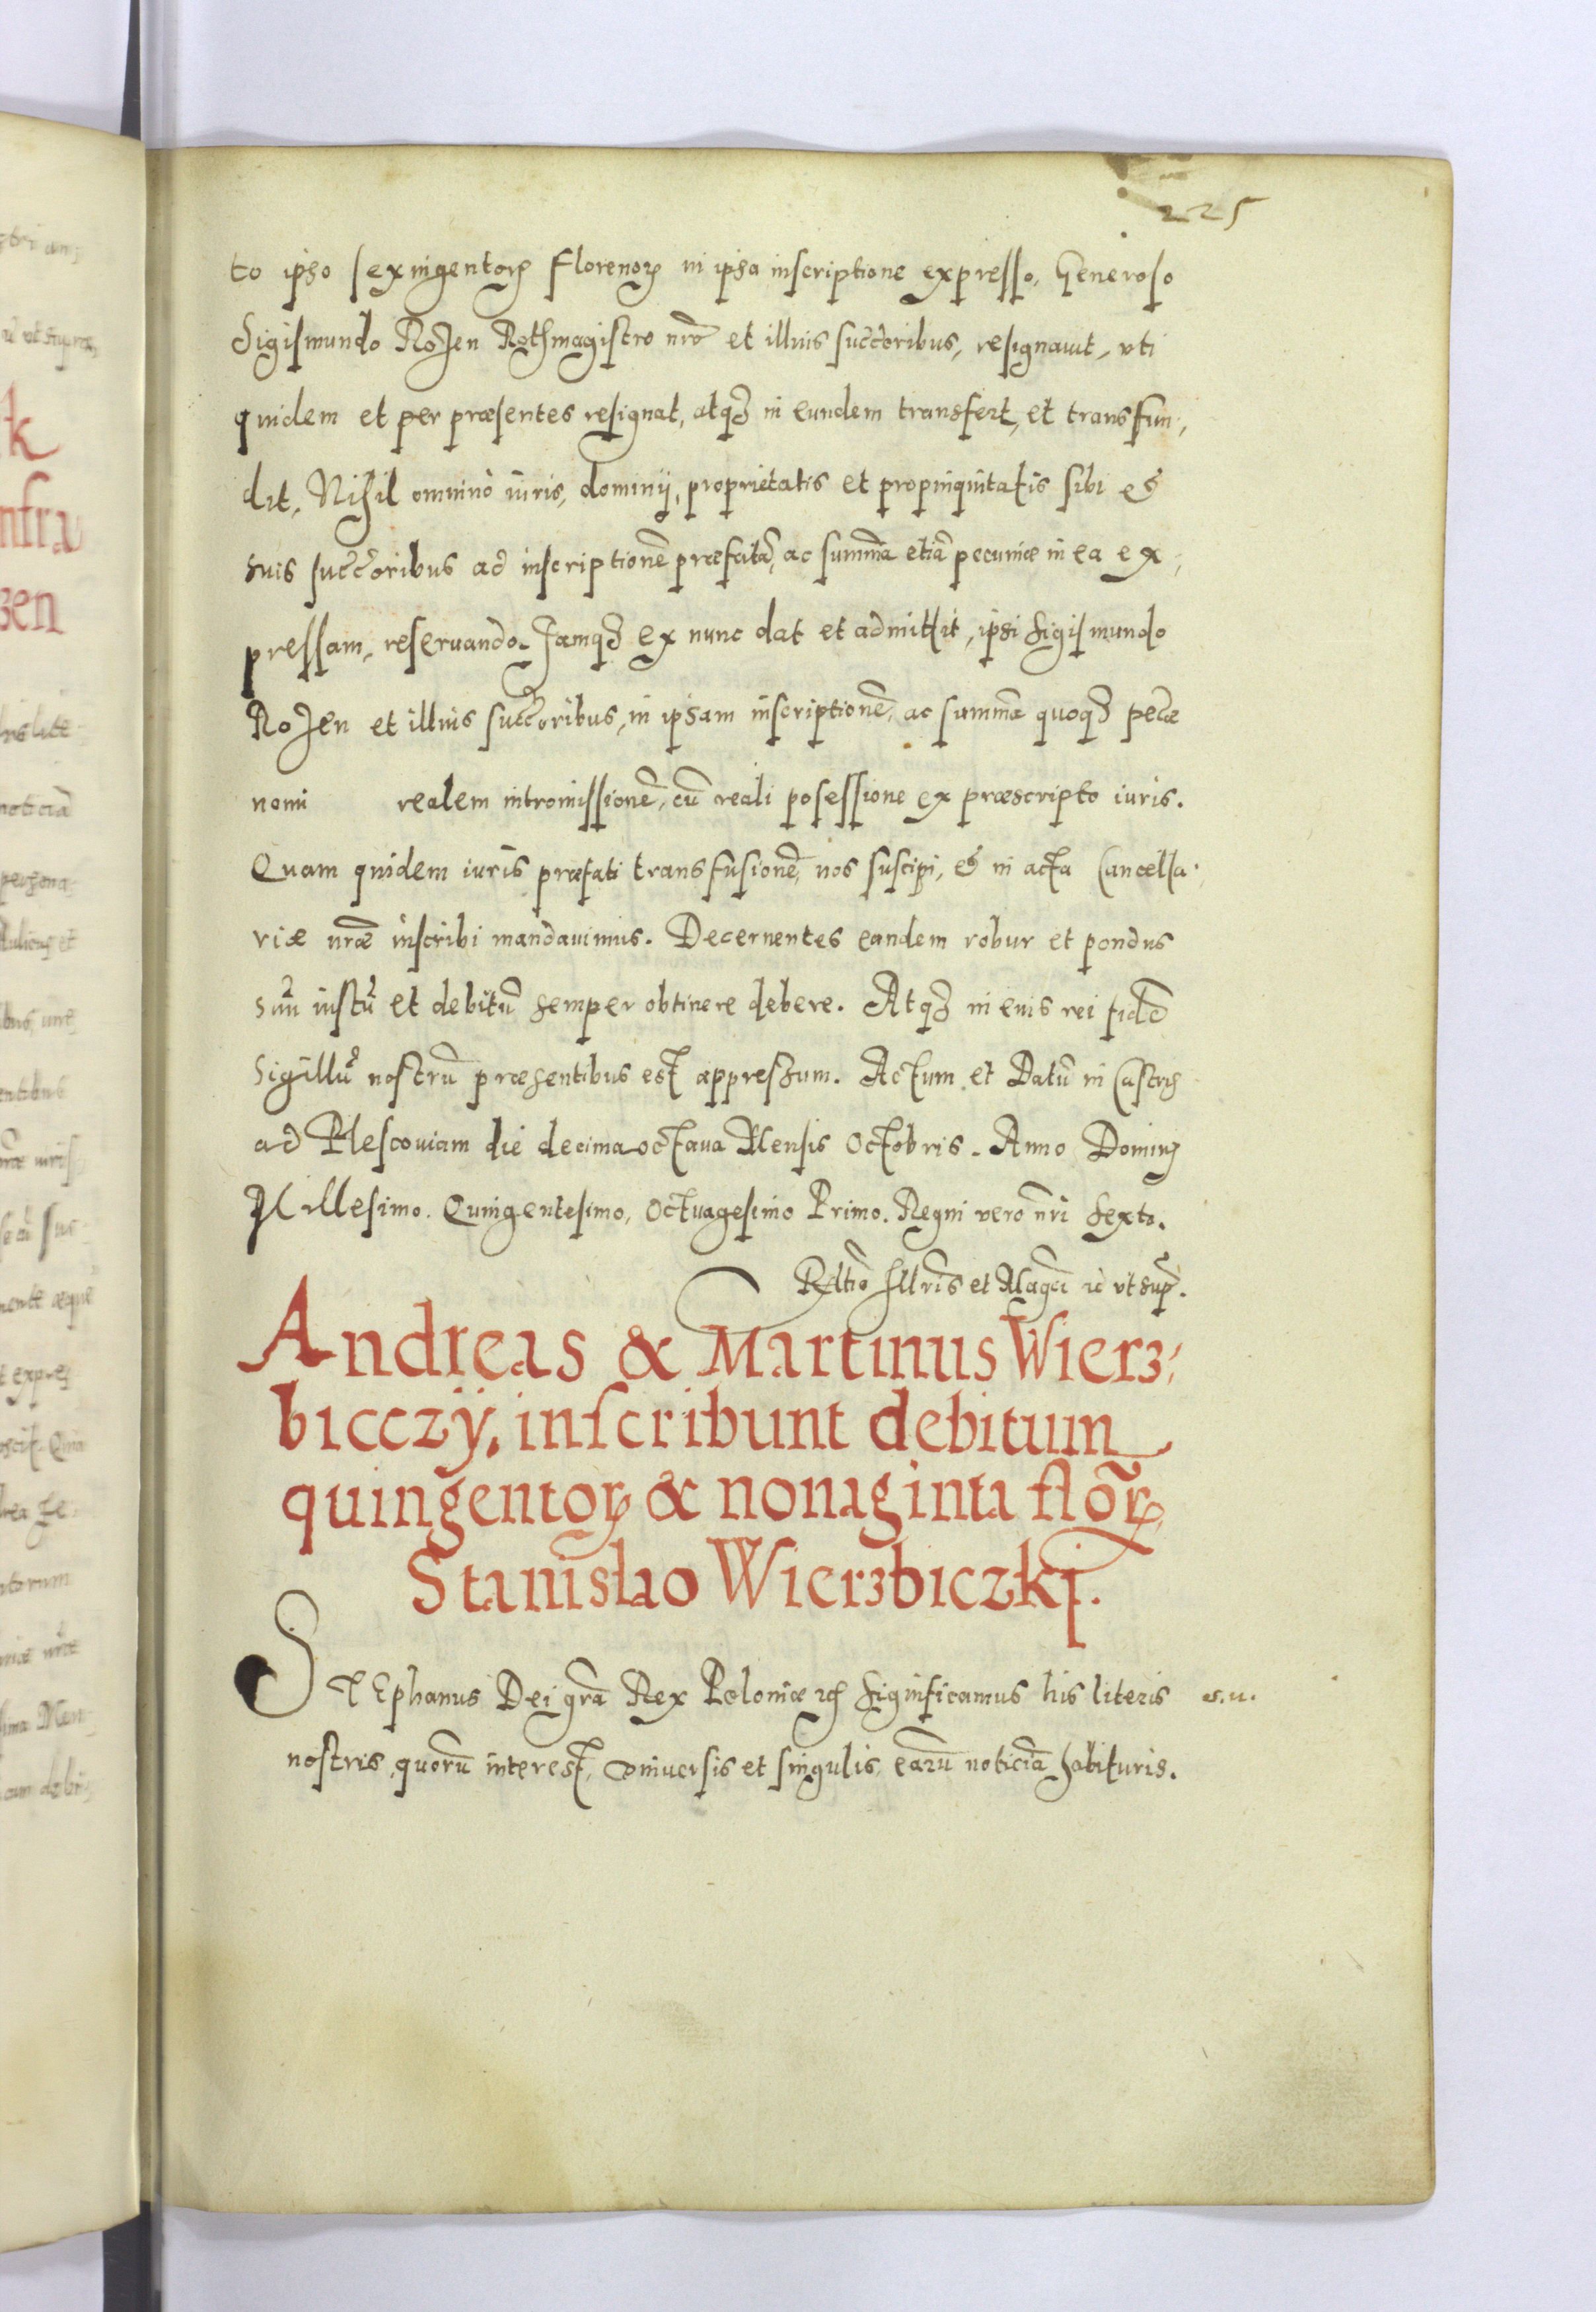 225
to ipso sexingentorꝝ florenorꝝ in ipsa inscriptione expresso, Generoso
Sigismundo Rozen Rothmagistro nr̃o et illius succ̃oribus, resignavit, uti
quidem et per præsentes resignat, atqꝫ in eundem transfert, et transfun,
dit, Nihil omnino iuris, dominij, proprietatis et propinquitatis sibi et
suis succ̃oribus ad inscriptionẽ præfatã, ac summã etiã pecuniæ in ea ex,
pressam, reservando. Jamqꝫ ex nunc dat et admittit, ipsi Sigismundo
Rozen et illius succ̃oribus, in ipsam inscriptionẽ, ac summã quoqꝫ pec̃æ
nomi realem intromissionẽ, cũ reali posessione ex præscripto iuris.
Quam quidem iuris præfati transfusionẽ, nos suscipi, et in acta Cancella,
riæ nr̃æ inscribi mandavimus. Decernentes eandem robur et pondus
suũ iustũ et debitũ semper obtinere debere. Atqꝫ in euis rei fidẽ
Sigillũ nostrũ præsentibus est appressum. Actum et Datũ in Castris
ad Plescoviam die decima octava Mensis Octobris. Anno Dominj
Millesimo. Quingentesimo, Octuagesimo Primo. Regni vero nr̃i Sexto.
Rel̃tio Ill̃ris et Mag̃ci ⁊c̃ ut sup̃.
Andreas & Martinus Wierz,
bicczÿ, inscribunt debitum
quingentorꝝ & nonaginta flõrꝝ,
Stanislao Wierzbiczkj.
STEphanus Dei gr̃a Rex Poloniæ ⁊c̃ Significamus his literis s.u.
nostris, quorũ interest, universis et singulis, earũ noticiã habituris.